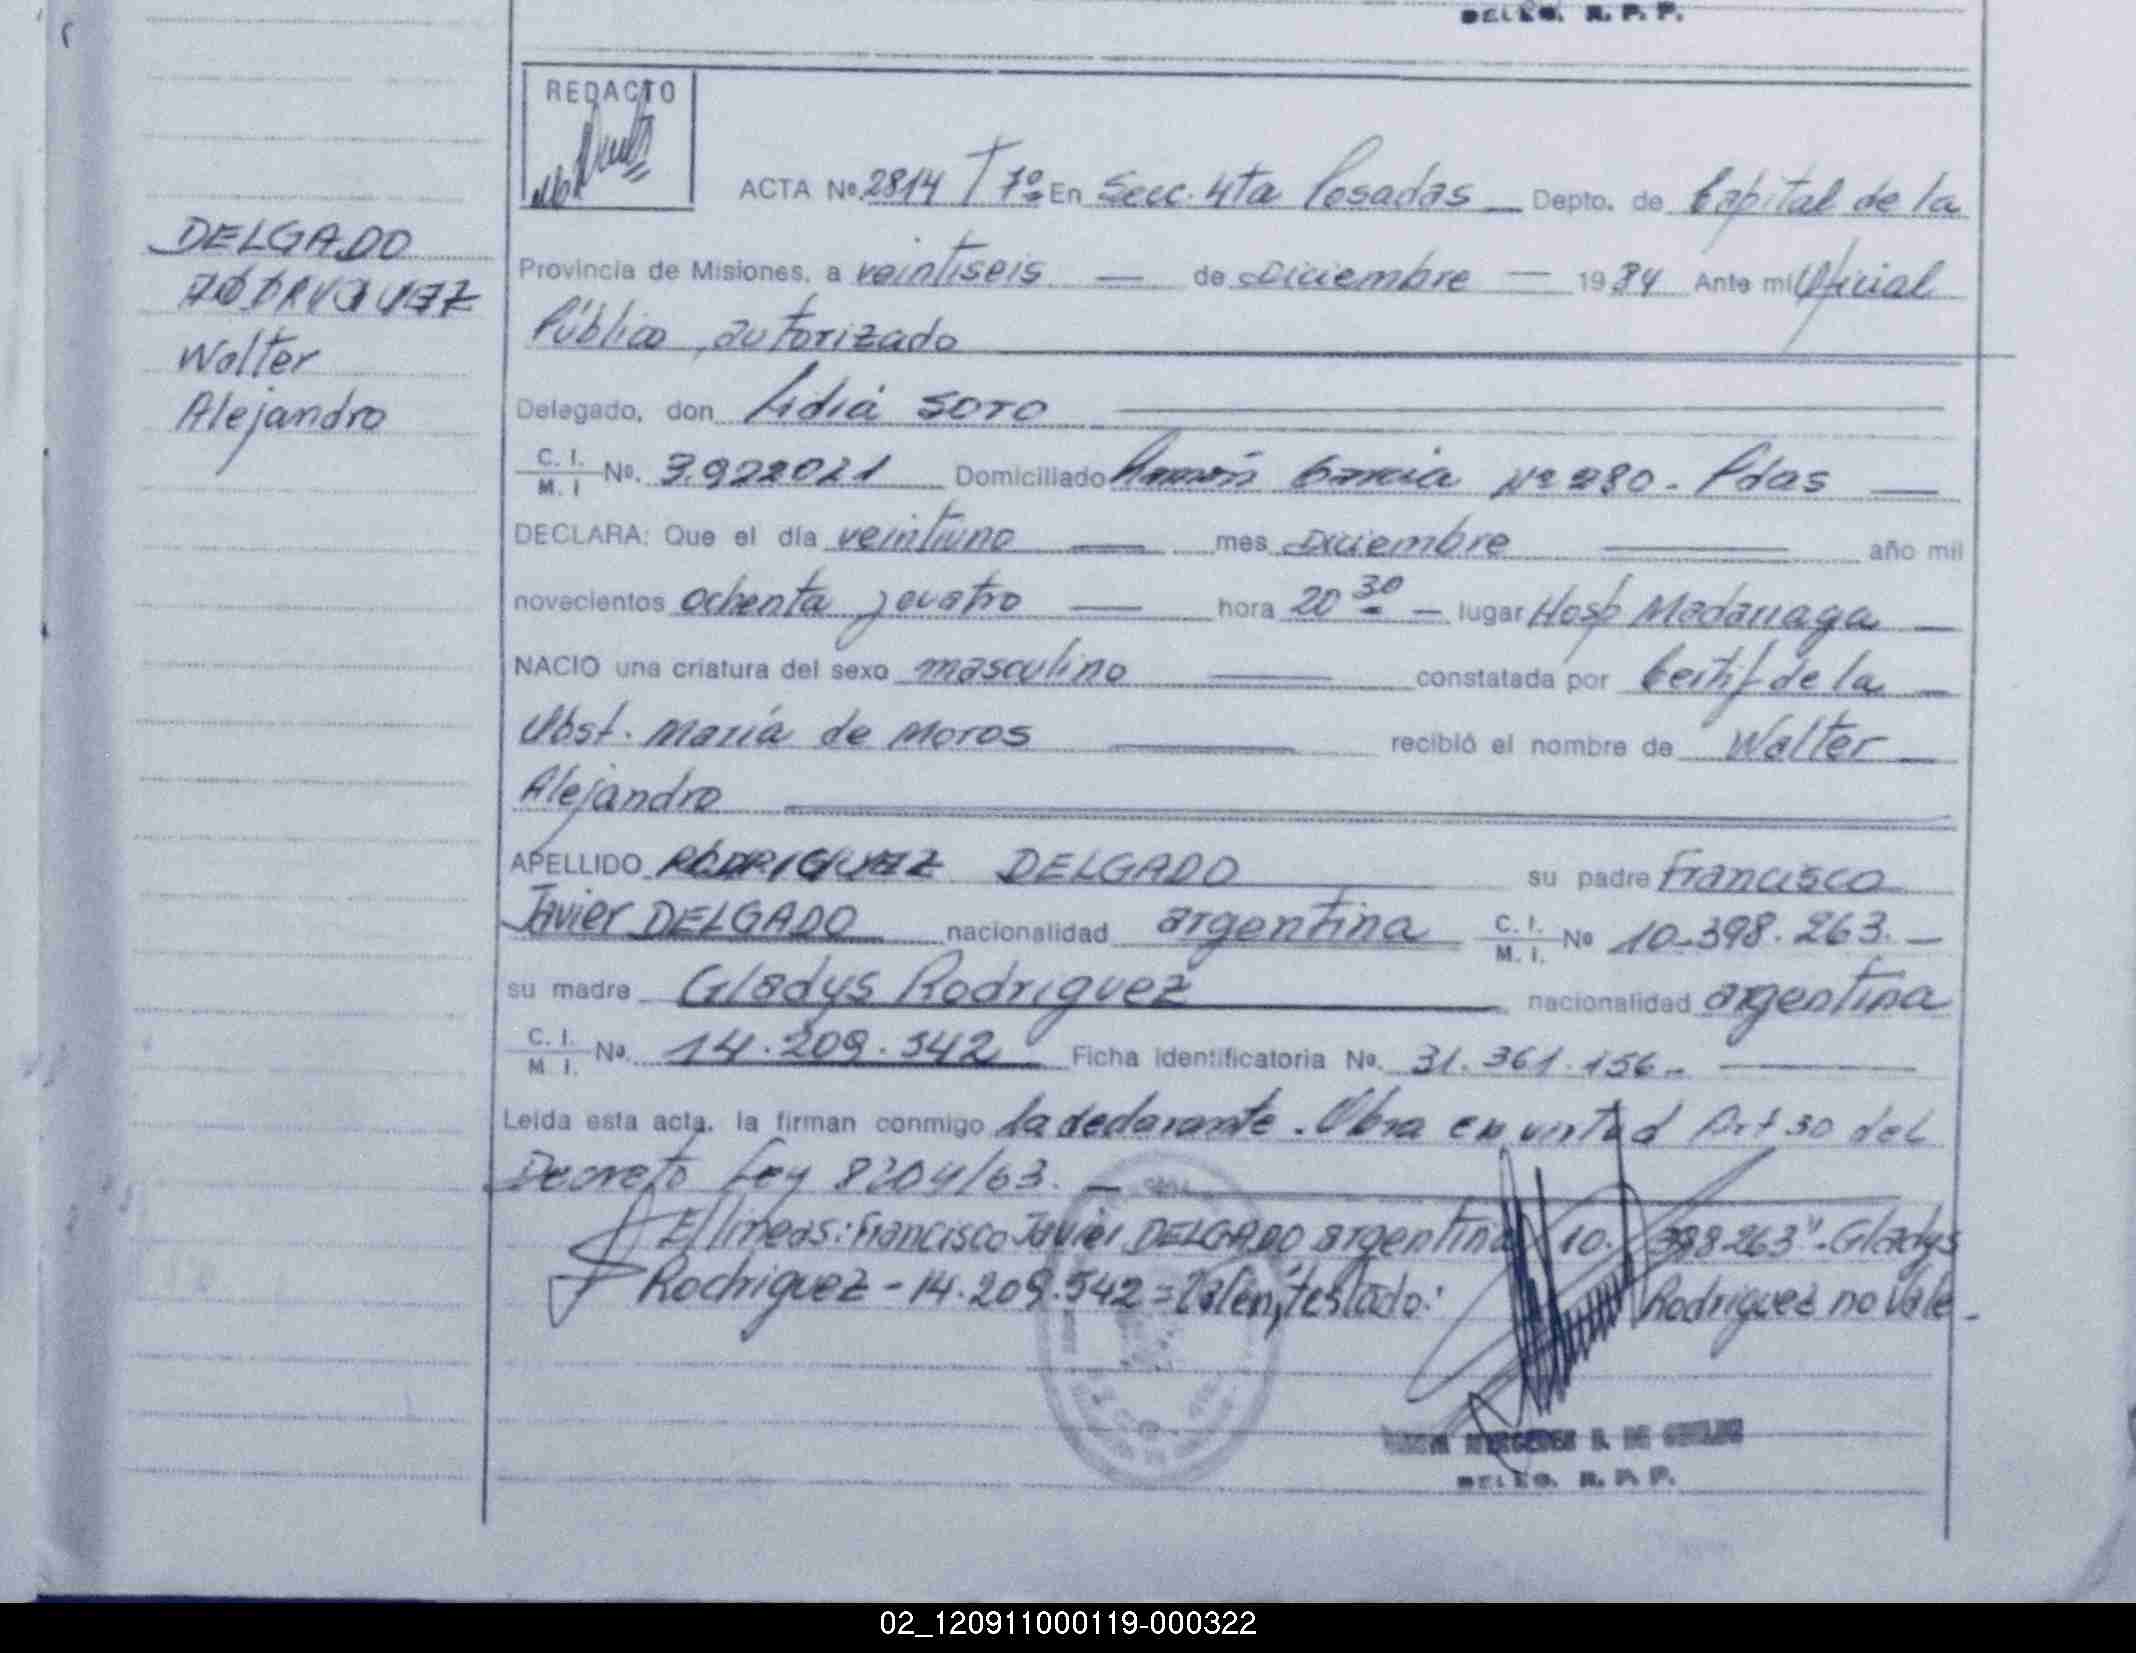 DELEG. R. P. P.
REDACTO
ACTA Nº 2814 T 7º En Secc. 4ta Posadas Depto. de Capital de la
DELGADO
RODRIGUEZ
Walter
Alejandro
Provincia de Misiones, a veintiseis de Diciembre 1984 Ante mi Oficial
Público autorizado
Delegado, don Lidia SOTO
C. I. / M. I Nº. 3.922021 Domiciliado Ramón Garcia Nº 280 - Pdas
DECLARA: Que el día veintiuno mes Diciembre año mil
novecientos ochenta y cuatro hora 20 30 lugar Hosp Madariaga
NACIO una criatura del sexo masculino constatada por Certif de la
Obst. María de Moros recibió el nombre de Walter
Alejandro
APELLIDO RODRIGUEZ DELGADO su padre Francisco
Javier DELGADO nacionalidad argentina C. I. / M. I. Nº 10.398.263.
su madre Gladys Rodriguez nacionalidad argentina
C. I. / M. I. Nº. 14.209.542 Ficha identificatoria Nº. 31.361.156
Leída esta acta, la firman conmigo la declarante. Obra en virtud Art 30 del
Decreto Ley 8204/63.
E/lineas: Francisco Javier DELGADO argentina 10. 398.263". Gladys
Rodriguez - 14.209.542 = Valen, testado: Rodriguez no vale
MERCEDES DE
DELEG. R. P. P.
02_120911000119-000322